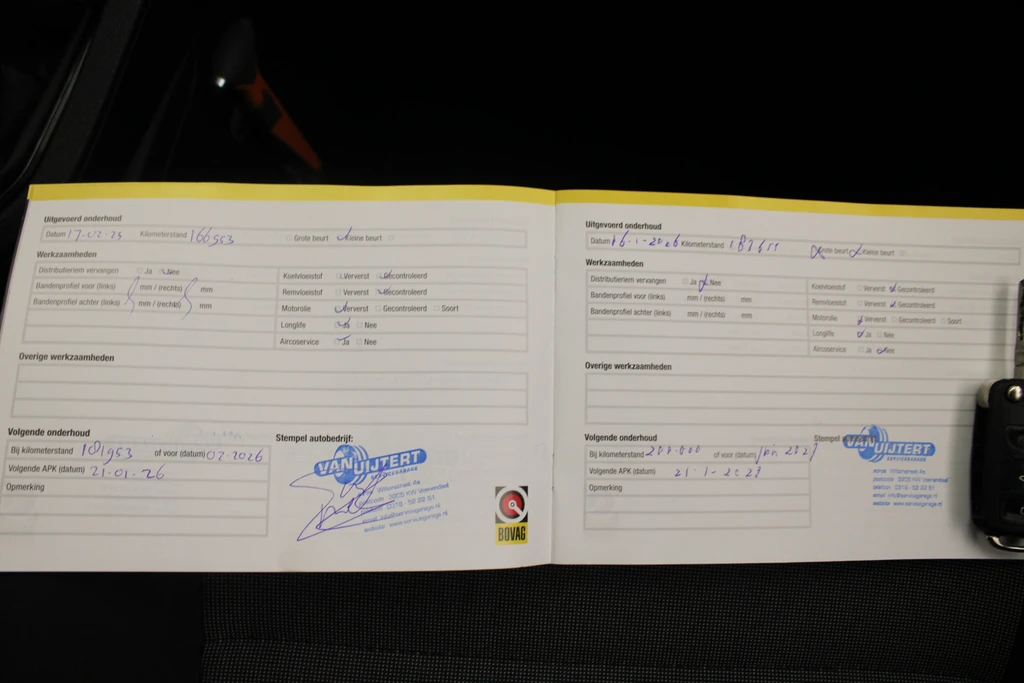 Uitgevoerd onderhoud
Datum 17-02-25 Kilometerstand 166953 Grote beurt Kleine beurt
Werkzaamheden
Distributieriem vervangen Ja Nee
Bandenprofiel voor (links) mm / (rechts) mm
Bandenprofiel achter (links) mm / (rechts) mm
Koelvloeistof Ververst Gecontroleerd
Remvloeistof Ververst Gecontroleerd
Motorolie Ververst Gecontroleerd Soort
Longlife Ja Nee
Aircoservice Ja Nee
Overige werkzaamheden
Volgende onderhoud
Bij kilometerstand 181953 of voor (datum) 02-2026
Volgende APK (datum) 21-01-26
Opmerking
Stempel autobedrijf:
VAN UIJTERT
SERVICEGARAGE
3905 KW Veenendaal
BOVAG
Uitgevoerd onderhoud
Datum 16-1-2026 Kilometerstand Grote beurt Kleine beurt
Werkzaamheden
Distributieriem vervangen Ja Nee
Bandenprofiel voor (links) mm / (rechts) mm
Bandenprofiel achter (links) mm / (rechts) mm
Koelvloeistof Ververst Gecontroleerd
Remvloeistof Ververst Gecontroleerd
Motorolie Ververst Gecontroleerd Soort
Longlife Ja Nee
Aircoservice Ja Nee
Overige werkzaamheden
Volgende onderhoud
Bij kilometerstand of voor (datum) jan
Volgende APK (datum)
Opmerking
Stempel
VAN UIJTERT
SERVICEGARAGE
postcode 3905 KW Veenendaal